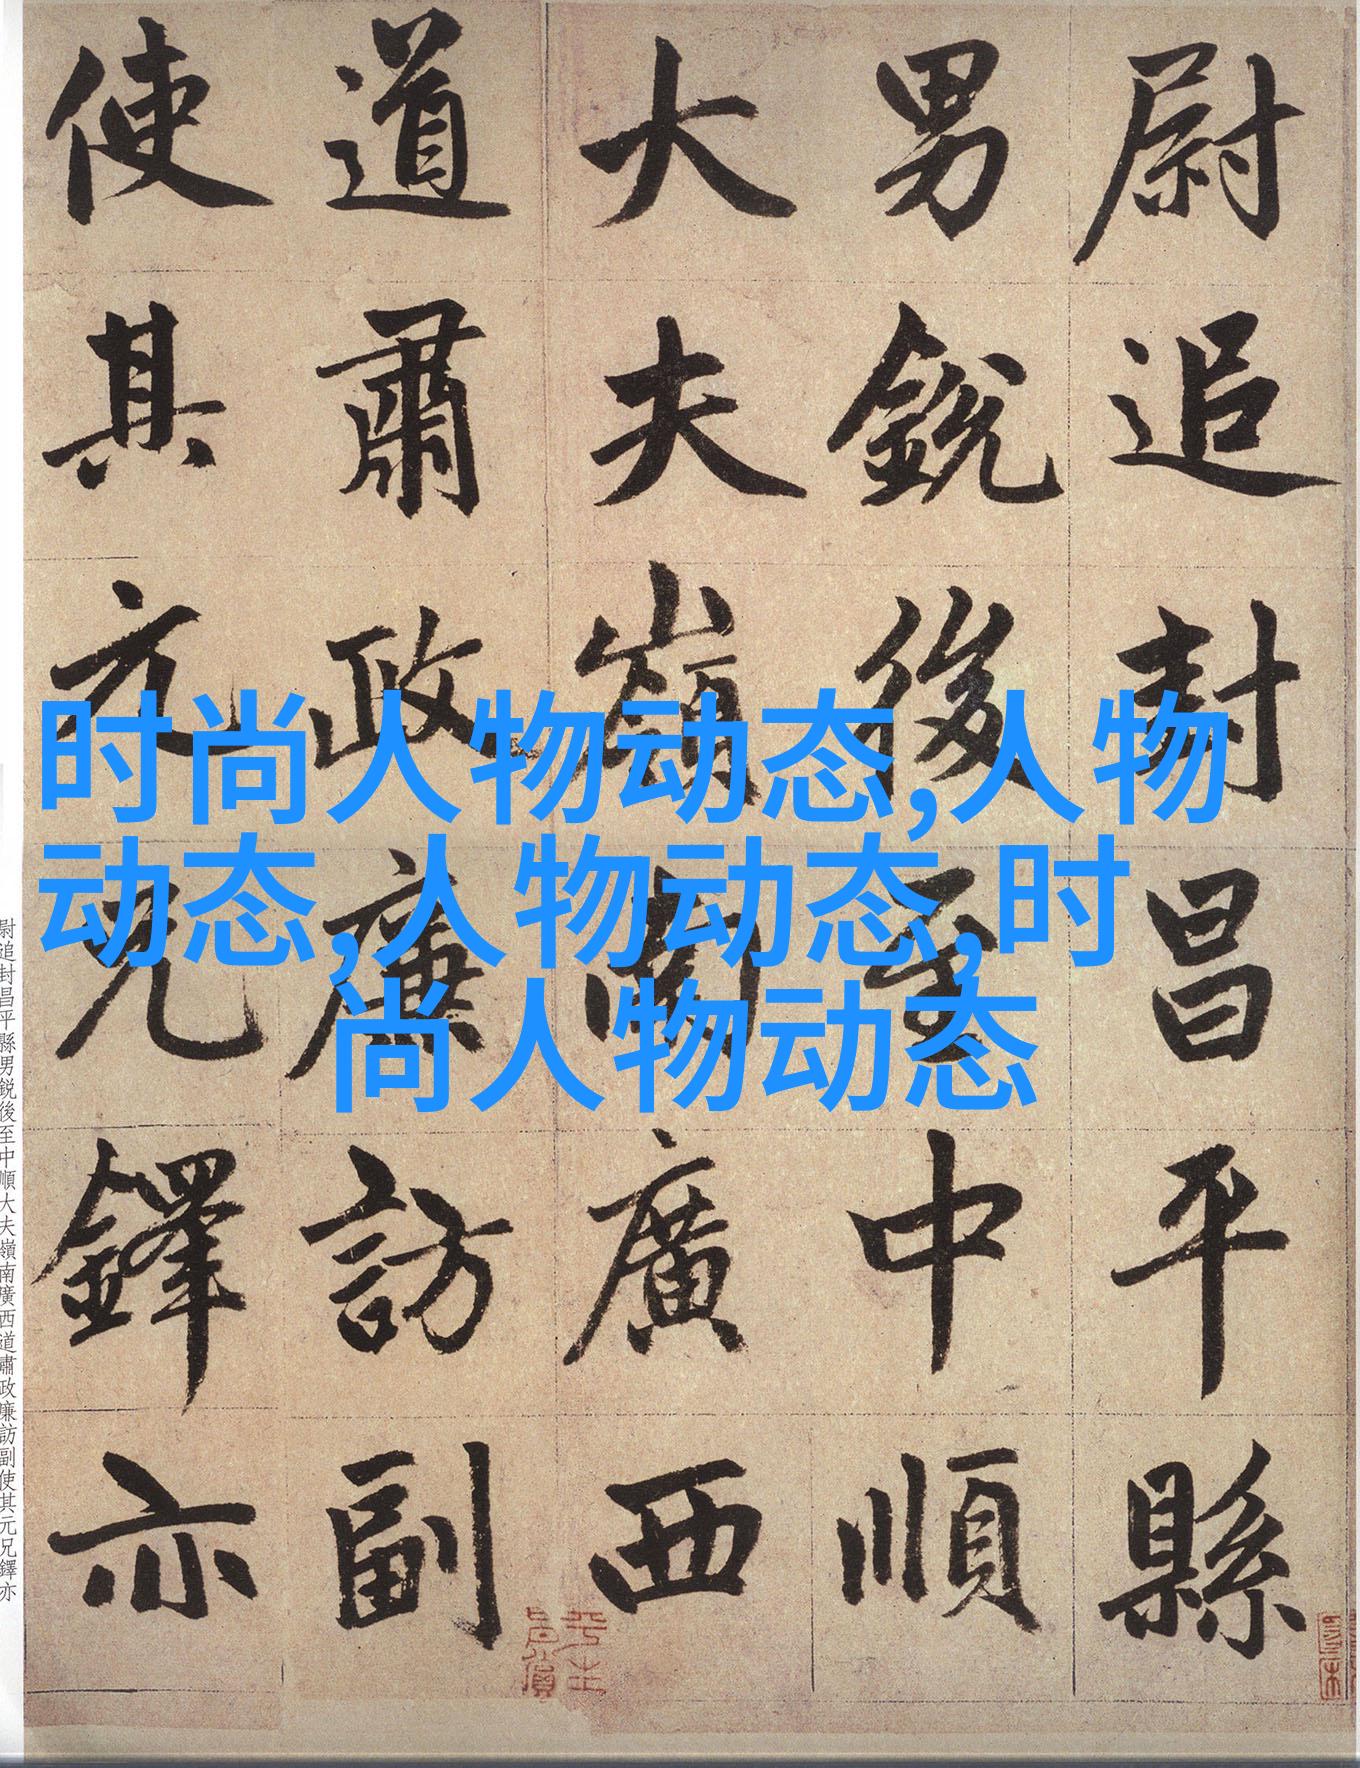 尉追封昌平縣
男銳後至中順
大夫嶺南廣西
道肅政廉訪副
使其元兄鐸亦
时尚人物动态,人物
动态,人物动态,时
尚人物动态
尉追封昌平縣男銳後至中順大夫嶺南廣西道肅政廉訪副使其元兄鐸亦